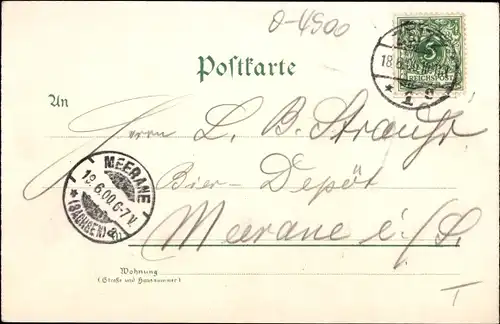 0-4900
Postkarte
5
REICHSPOST
18.6.00.
* 1 c
An
Herrn L. B. Strauhs
Bier-Depôt
Meerane i/S.
MEERANE
19.6.00.6-7V.
* (SACHSEN) a
Wohnung
(Straße und Hausnummer)
T